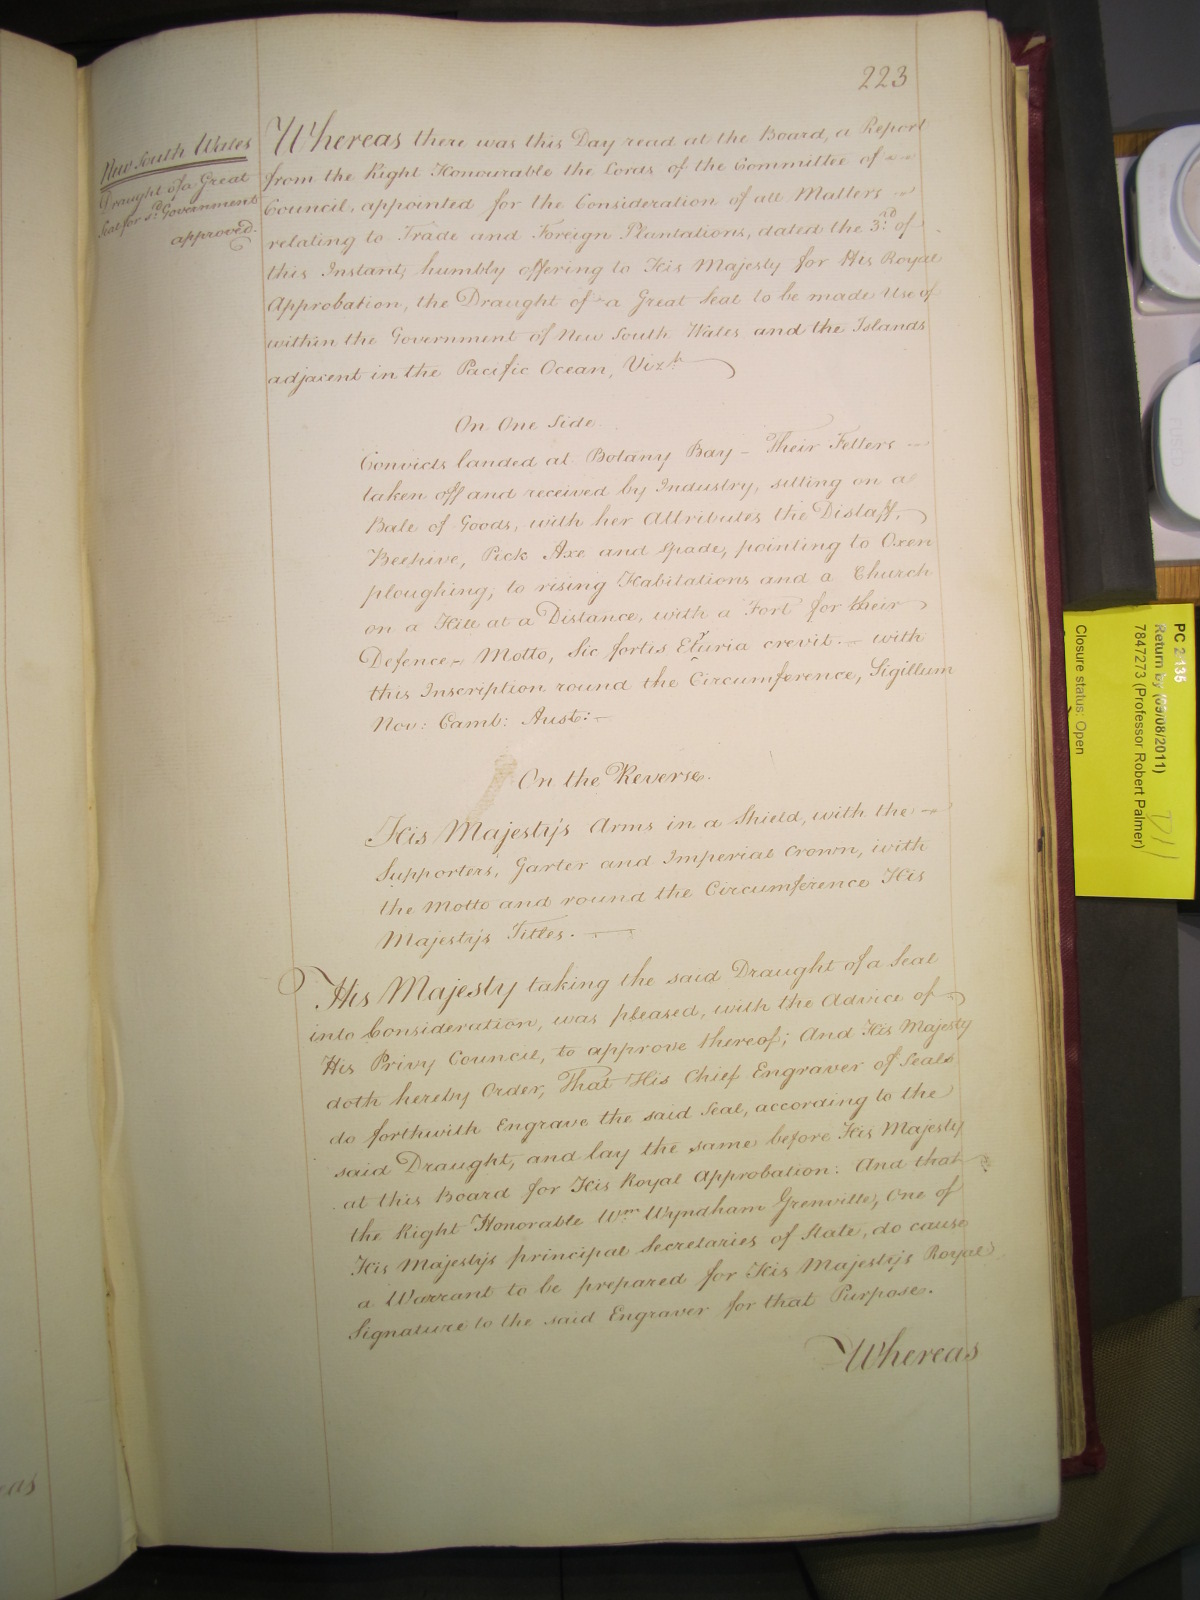 223
New South Wales
Draught of a Great
Seal for sd. Government
approved.
Whereas there was this Day read at the Board, a Report
from the Right Honourable the Lords of the Committee of
Council, appointed for the Consideration of all Matters
relating to Trade and Foreign Plantations, dated the 3rd. of
this Instant, humbly offering to His Majesty for His Royal
Approbation, the Draught of a Great Seal to be made Use of
within the Government of New South Wales and the Islands
adjacent in the Pacific Ocean, Vizt.
On One Side
Convicts landed at Botany Bay - Their Fetters
taken off and received by Industry, sitting on a
Bale of Goods, with her Attributes the Distaff,
Beehive, Pick Axe and Spade, pointing to Oxen
ploughing, to rising Habitations and a Church
on a Hill at a Distance, with a Fort for their
Defence - Motto, Sic fortis Eturia crevit. - with
this Inscription round the Circumference, Sigillum
Nov: Camb: Aust: -
On the Reverse.
His Majesty's Arms in a Shield, with the
Supporters, Garter and Imperial Crown, with
the Motto and round the Circumference His
Majesty's Titles.
His Majesty taking the said Draught of a Seal
into Consideration, was pleased, with the Advice of
His Privy Council, to approve thereof; And His Majesty
doth hereby Order, That His Chief Engraver of Seals
do forthwith Engrave the said Seal, according to the
said Draught, and lay the same before His Majesty
at this Board for His Royal Approbation. And that
the Right Honorable Wm. Wyndham Grenville, One of
His Majesty's principal Secretaries of State, do cause
a Warrant to be prepared for His Majesty's Royal
Signature to the said Engraver for that Purpose.
Whereas
eas
PC 2 135
Return by (09/08/2011)
7847273 (Professor Robert Palmer)
Closure status: Open